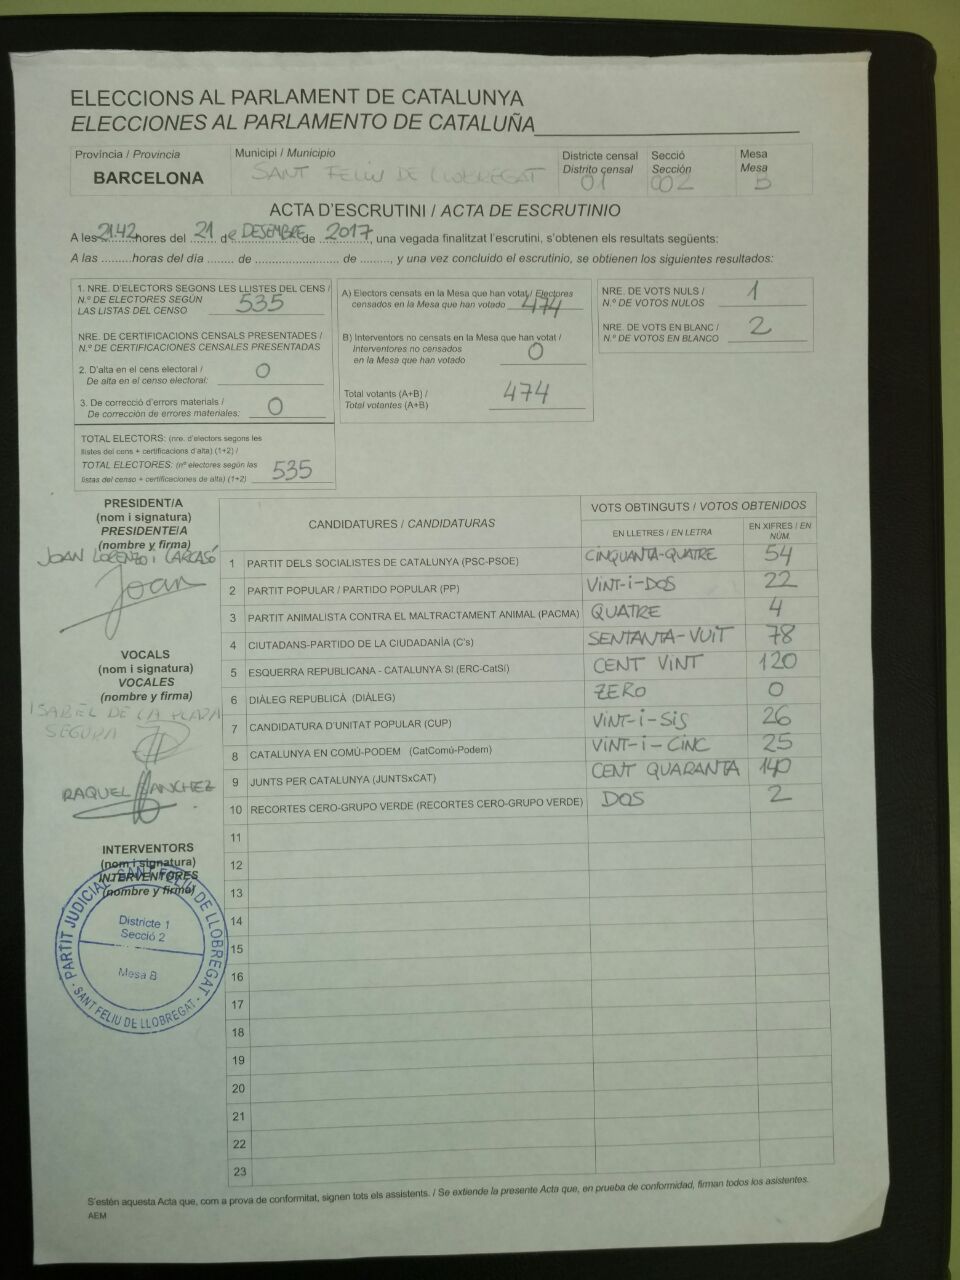 ELECCIONS AL PARLAMENT DE CATALUNYA
ELECCIONES AL PARLAMENTO DE CATALUÑA
Província / Provincia
BARCELONA
Municipi / Municipio
SANT FELIU DE LLOBREGAT
Districte censal
Distrito censal
01
Secció
Sección
002
Mesa
Mesa
B
ACTA D'ESCRUTINI / ACTA DE ESCRUTINIO
A les 21.42 hores del 21 de DESEMBRE de 2017, una vegada finalitzat l'escrutini, s'obtenen els resultats següents:
A las .........horas del día ........ de .......................... de ........., y una vez concluido el escrutinio, se obtienen los siguientes resultados:
1. NRE. D'ELECTORS SEGONS LES LLISTES DEL CENS /
N.º DE ELECTORES SEGÚN
LAS LISTAS DEL CENSO 535
NRE. DE CERTIFICACIONS CENSALS PRESENTADES /
N.º DE CERTIFICACIONES CENSALES PRESENTADAS
2. D'alta en el cens electoral /
De alta en el censo electoral: 0
3. De correcció d'errors materials /
De corrección de errores materiales: 0
TOTAL ELECTORS: (nre. d'electors segons les
llistes del cens + certificacions d'alta) (1+2) /
TOTAL ELECTORES: (nº electores según las
listas del censo + certificaciones de alta) (1+2) 535
A) Electors censats en la Mesa que han votat / Electores
censados en la Mesa que han votado 474
B) Interventors no censats en la Mesa que han votat /
Interventores no censados
en la Mesa que han votado 0
Total votants (A+B) /
Total votantes (A+B) 474
NRE. DE VOTS NULS /
N.º DE VOTOS NULOS 1
NRE. DE VOTS EN BLANC /
N.º DE VOTOS EN BLANCO 2
PRESIDENT/A
(nom i signatura)
PRESIDENTE/A
(nombre y firma)
JOAN LORENZO i CARCASÓ
Joan
VOCALS
(nom i signatura)
VOCALES
(nombre y firma)
ISABEL DE LA PLAZA
SEGURA
RAQUEL SANCHEZ
INTERVENTORS
(nom i signatura)
INTERVENTORES
(nombre y firma)
PARTIT JUDICIAL SANT FELIU DE LLOBREGAT
Districte 1
Secció 2
Mesa B
SANT FELIU DE LLOBREGAT
CANDIDATURES / CANDIDATURAS
VOTS OBTINGUTS / VOTOS OBTENIDOS
EN LLETRES / EN LETRA
EN XIFRES / EN NÚM.
1 PARTIT DELS SOCIALISTES DE CATALUNYA (PSC-PSOE) CINQUANTA-QUATRE 54
2 PARTIT POPULAR / PARTIDO POPULAR (PP) VINT-i-DOS 22
3 PARTIT ANIMALISTA CONTRA EL MALTRACTAMENT ANIMAL (PACMA) QUATRE 4
4 CIUTADANS-PARTIDO DE LA CIUDADANÍA (C's) SENTANTA-VUIT 78
5 ESQUERRA REPUBLICANA - CATALUNYA SÍ (ERC-CatSí) CENT VINT 120
6 DIÀLEG REPUBLICÀ (DIÀLEG) ZERO 0
7 CANDIDATURA D'UNITAT POPULAR (CUP) VINT-i-SIS 26
8 CATALUNYA EN COMÚ-PODEM (CatComú-Podem) VINT-i-CINC 25
9 JUNTS PER CATALUNYA (JUNTSxCAT) CENT QUARANTA 140
10 RECORTES CERO-GRUPO VERDE (RECORTES CERO-GRUPO VERDE) DOS 2
11
12
13
14
15
16
17
18
19
20
21
22
23
S'estén aquesta Acta que, com a prova de conformitat, signen tots els assistents. / Se extiende la presente Acta que, en prueba de conformidad, firman todos los asistentes.
AEM